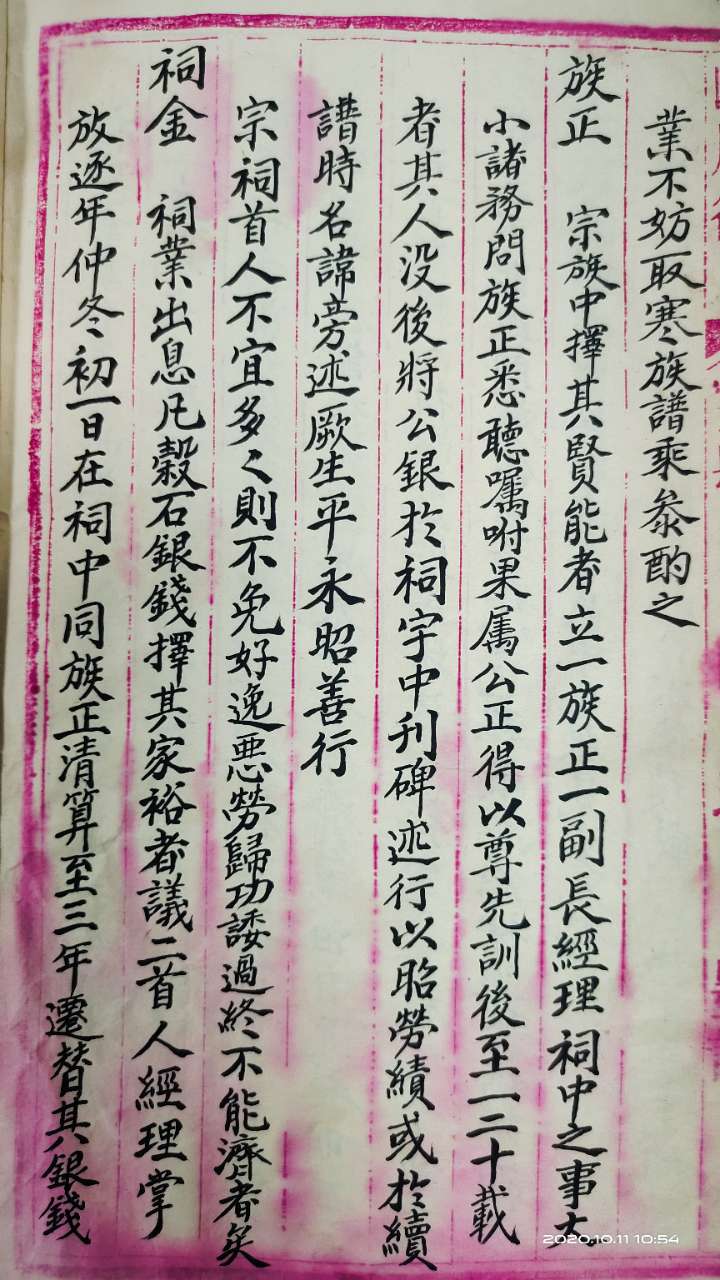 業不妨取寒族譜乘叅酌之
族正　宗族中擇其賢能者立一族正一副長經理祠中之事大
小諸務問族正悉聽囑咐果属公正得以尊先訓後至一二十載
者其人没後將公銀於祠宇中刋碑述行以昭勞績或於續
譜時名諱旁述厥生平永昭善行
宗祠首人不宜多々則不免好逸悪勞歸功諉過終不能濟者矣
祠金　祠業出息凡穀石銀錢擇其家裕者議二首人經理掌
放逐年仲冬初一日在祠中同族正清算至三年遷替其銀錢
2020.10.11 10:54